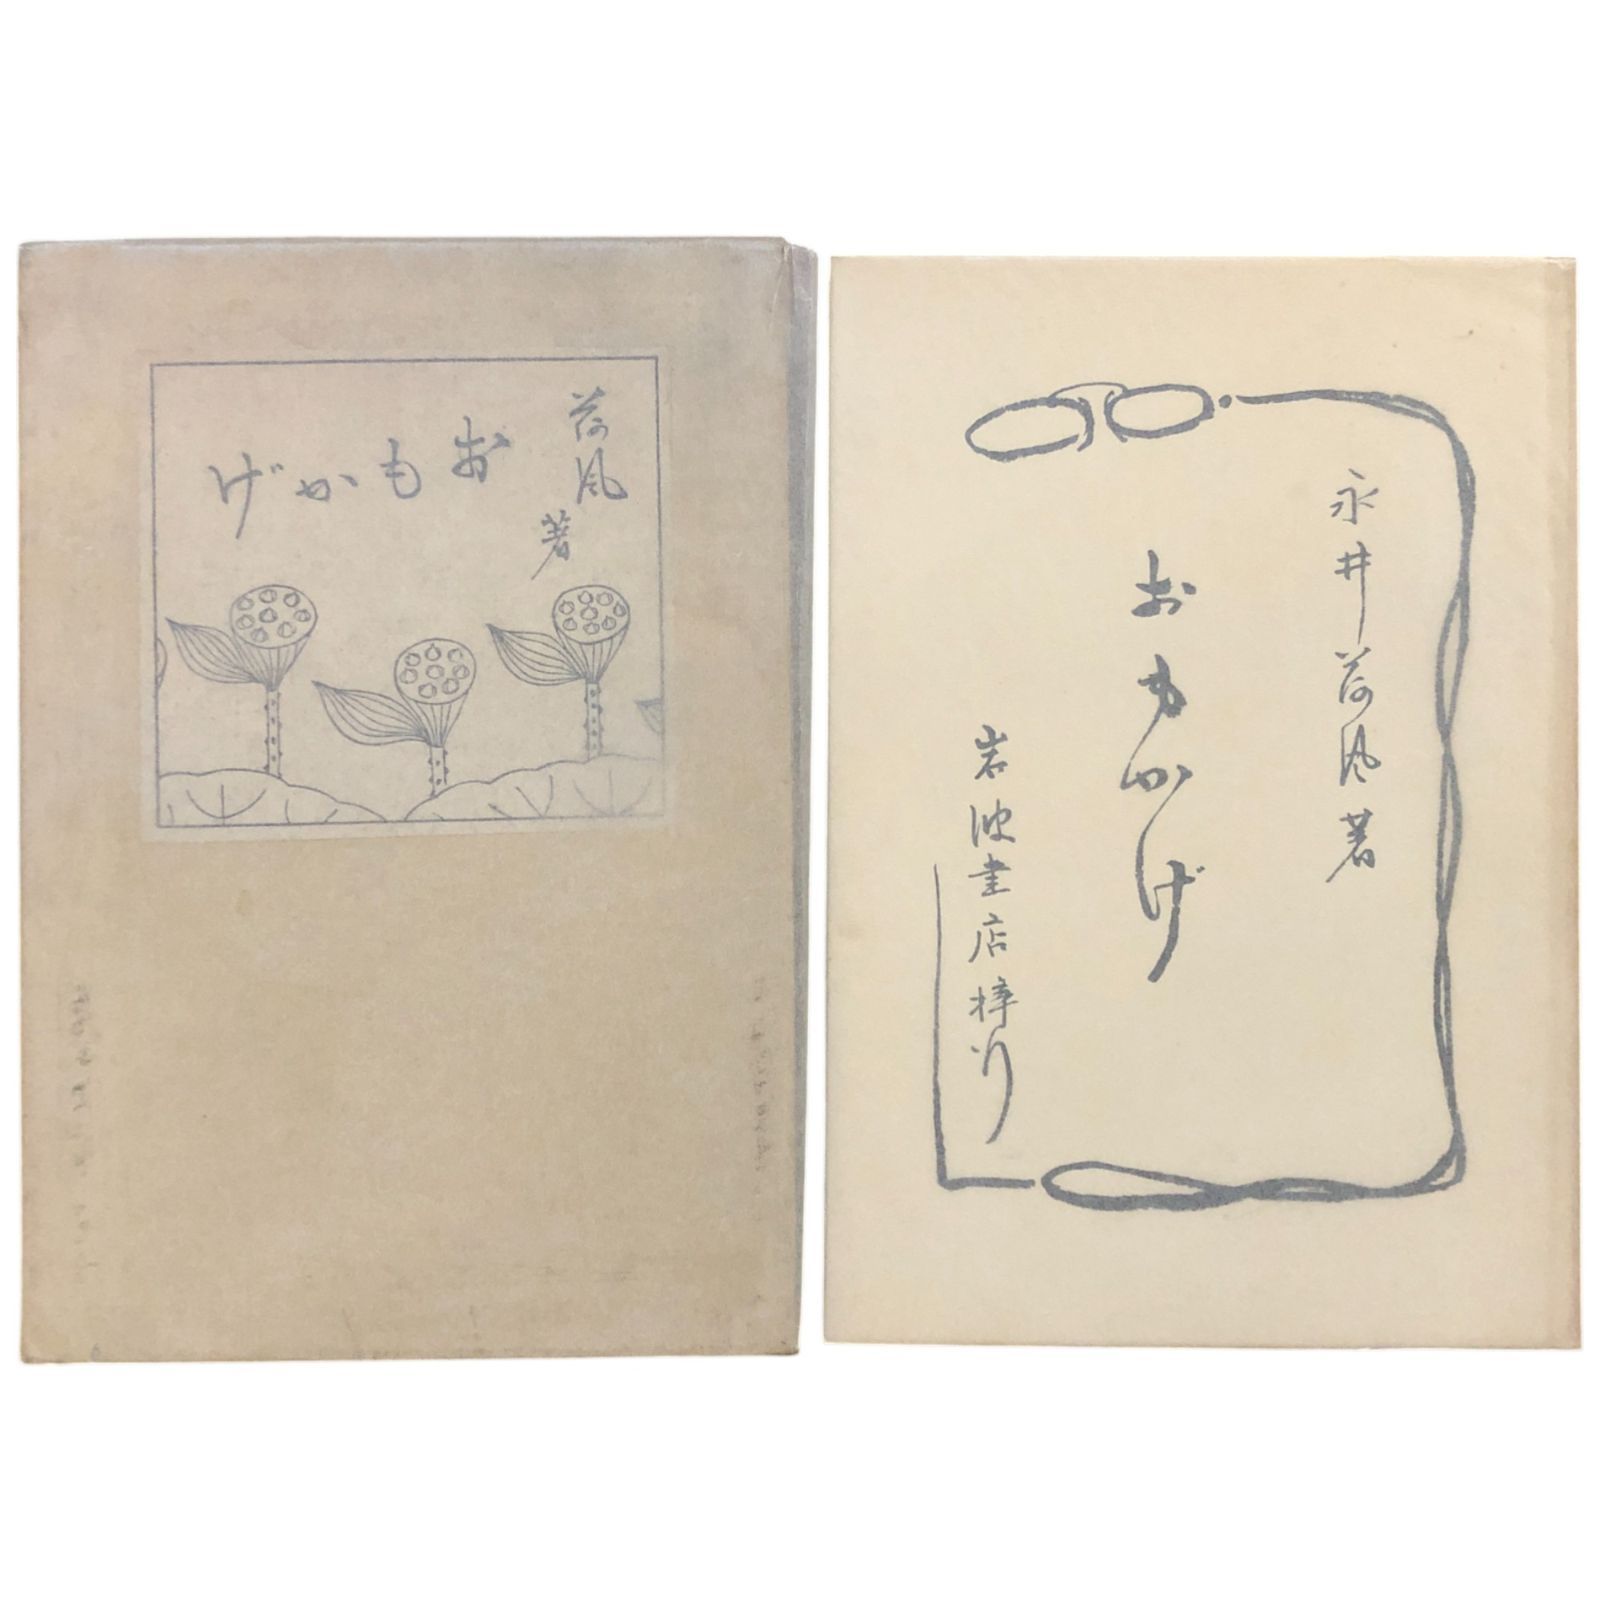 荷風著
おもかげ
永井荷風著
おもかげ
岩波書店梓行